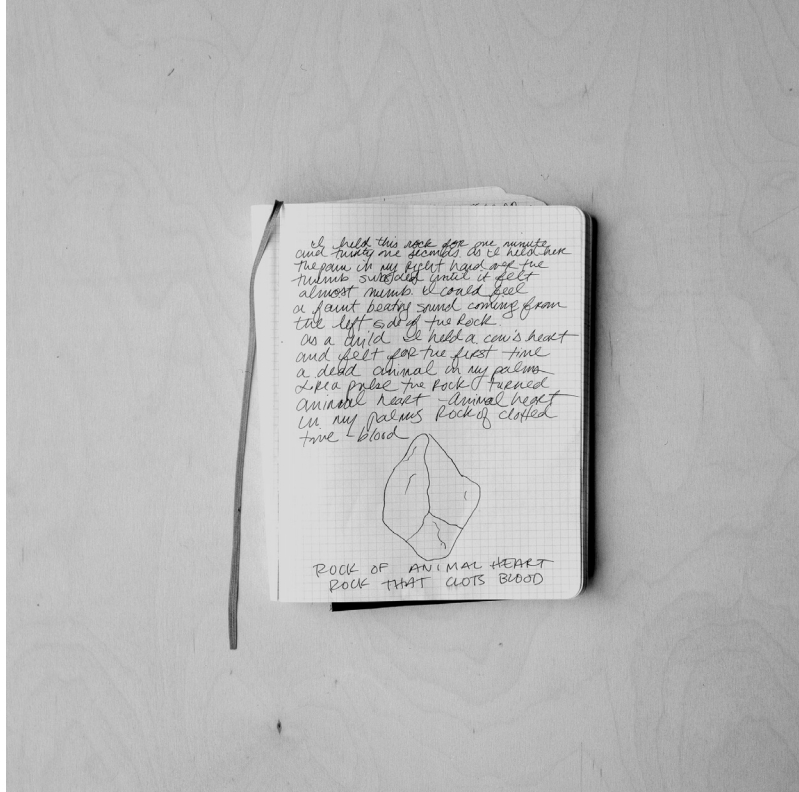 I held this rock for one minute
and thirty one seconds. as I held her
the pain in my right hand over the
thumb subsided until it felt
almost numb. I could feel
a faint beating sound coming from
the left side of the Rock.
as a child I held a cow's heart
and felt for the first time
a dead animal in my palms
Like a pulse the rock turned
animal heart - animal heart
in my palms Rock of clotted
time - blood
ROCK OF ANIMAL HEART
ROCK THAT CLOTS BLOOD